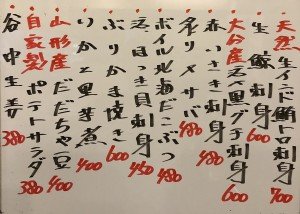 天然生インド鮪トロ刺身 700
生鯨刺身 600
大分産 活〆黒グチ刺身 600
赤いさき刺身 480
炙りメサバ 480
ボイル北海だこぶつ 480
活ほっき貝刺身 450
ぶりかま焼き 600
いかと里芋煮 400
山形産 だだちゃ豆 400
自家製 ポテトサラダ 380
谷中生姜 380